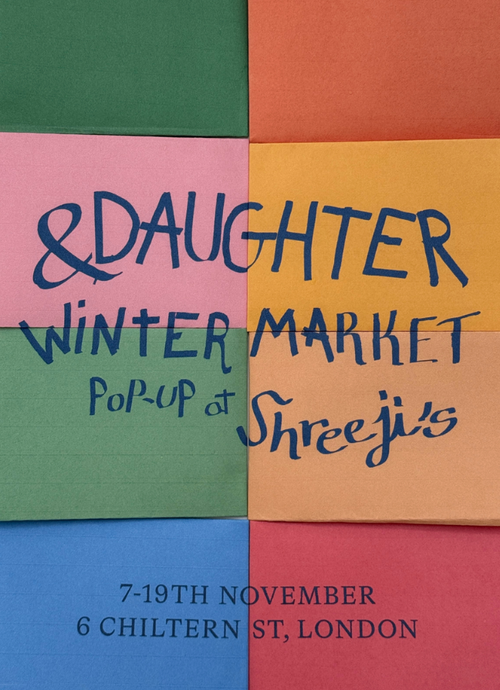 &DAUGHTER
WiNTER MARKET
PoP-UP at Shreeji's
7-19TH NOVEMBER
6 CHILTERN ST, LONDON